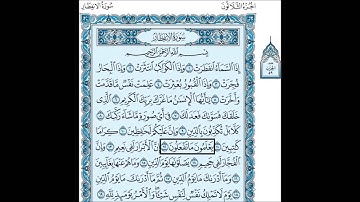 سُورَةُ الانفِطَارِ
الجُزْءُ الثَّلَاثُونَ
سُورَةُ الانفِطَارِ
بِسْمِ اللَّهِ الرَّحْمَٰنِ الرَّحِيمِ
إِذَا السَّمَاءُ انفَطَرَتْ ١ وَإِذَا الْكَوَاكِبُ انتَثَرَتْ ٢ وَإِذَا الْبِحَارُ
فُجِّرَتْ ٣ وَإِذَا الْقُبُورُ بُعْثِرَتْ ٤ عَلِمَتْ نَفْسٌ مَّا قَدَّمَتْ
وَأَخَّرَتْ ٥ يَا أَيُّهَا الْإِنسَانُ مَا غَرَّكَ بِرَبِّكَ الْكَرِيمِ ٦ الَّذِي
خَلَقَكَ فَسَوَّاكَ فَعَدَلَكَ ٧ فِي أَيِّ صُورَةٍ مَّا شَاءَ رَكَّبَكَ ٨
كَلَّا بَلْ تُكَذِّبُونَ بِالدِّينِ ٩ وَإِنَّ عَلَيْكُمْ لَحَافِظِينَ ١٠ كِرَامًا
كَاتِبِينَ ١١ يَعْلَمُونَ مَا تَفْعَلُونَ ١٢ إِنَّ الْأَبْرَارَ لَفِي نَعِيمٍ ١٣ وَإِنَّ
الْفُجَّارَ لَفِي جَحِيمٍ ١٤ يَصْلَوْنَهَا يَوْمَ الدِّينِ ١٥ وَمَا هُمْ عَنْهَا بِغَائِبِينَ
١٦ وَمَا أَدْرَاكَ مَا يَوْمُ الدِّينِ ١٧ ثُمَّ مَا أَدْرَاكَ مَا يَوْمُ الدِّينِ
١٨ يَوْمَ لَا تَمْلِكُ نَفْسٌ لِّنَفْسٍ شَيْئًا وَالْأَمْرُ يَوْمَئِذٍ لِّلَّهِ ١٩